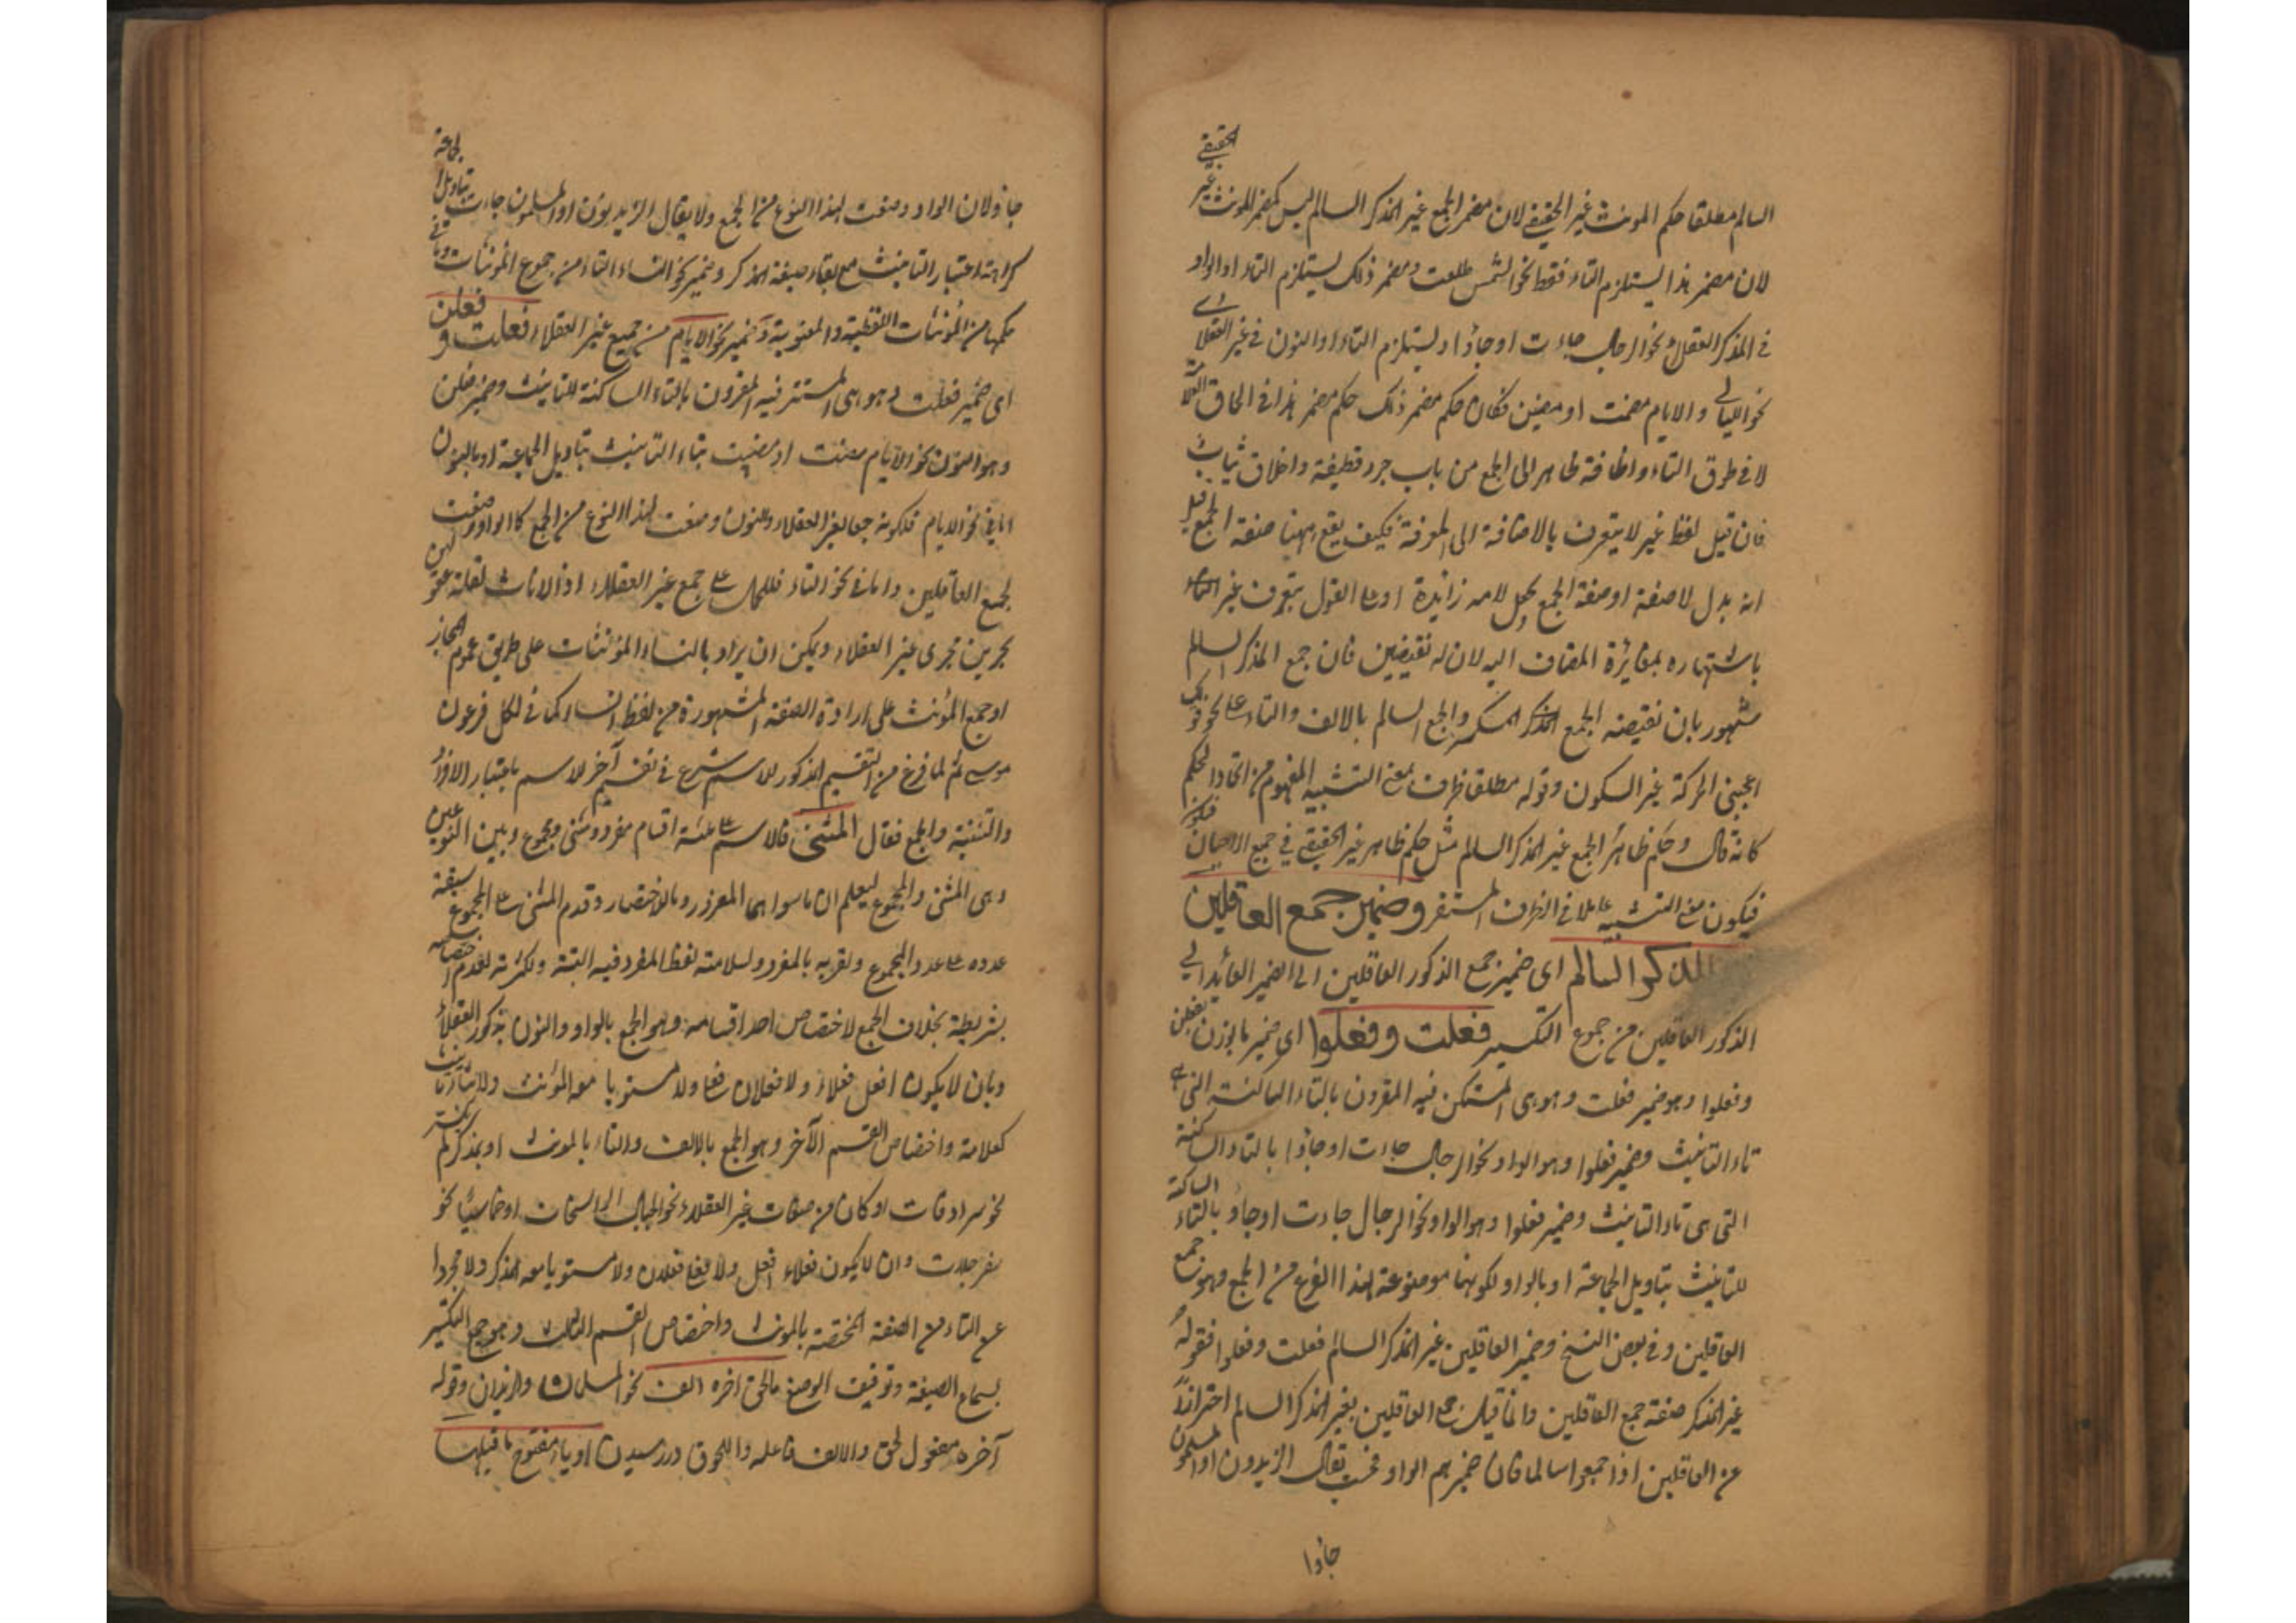 السالم مطلقا حكم المونث غير الحقيقي لان مضمر الجمع غير المذكر السالم ليس كمضمر المونث غير
الحقيقي
لان مضمر هذا يستلزم التاء فقط نحو الشمس طلعت ومضمر ذلك يستلزم التاء او الواو
في المذكر العقلاء نحو الرجال جاءت او جاؤا او يستلزم التاء او النون في غير العقلاء
نحو الليالي والايام مضت او مضين فكان حكم مضمر ذلك حكم مضمر هذا في الحاق
لا في طرق التاء واضافة ظاهر الى الجمع من باب جرد قطيفة واخلاق ثياب
فان قيل لفظ غير لا يتعرف بالاضافة الى المعرفة فكيف يقع ههنا صفة الجمع قيل
انه بدل لا صفة او صفة الجمع بجعل لامه زائدة او على القول بتعرف غير
باشتهاره بمغايرة المضاف اليه لان له نقيضين فان جمع المذكر السالم
مشهور بان نقيضه الجمع المذكر المكسر والجمع السالم بالالف والتاء على نحو قولك
اعجبني الحركة غير السكون وقوله مطلقا ظرف لمعنى التشبيه المفهوم من اتحاد الحكم
كانه قال وحكم ظاهر الجمع غير المذكر السالم مثل حكم ظاهر غير الحقيقي في جميع الاحيان
فيكون معنى التشبيه عاملا في الظرف المستقر وضمير جمع العاقلين
المذكر السالم اى ضمير جمع الذكور العاقلين اى الضمير العائد الى
الذكور العاقلين من جموع التكسير فعلت وفعلوا اى ضمير ما بوزن فعلن
وفعلوا وهو ضمير فعلت وهو هى المستكن فيه المقرون بالتاء الساكنة التي هي
تاء التانيث وضمير فعلوا وهو الواو نحو الرجال جاءت او جاؤا بالتاء الساكنة
التى هى تاء التانيث وضمير فعلوا وهو الواو نحو الرجال جاءت او جاؤ بالتاء الساكنة
للتانيث بتاويل الجماعة او بالواو لكونها موضوعة لهذا النوع من الجمع وهو جمع
العاقلين وفى بعض النسخ وضمير العاقلين غير المذكر السالم فعلت وفعلوا فقوله
غير المذكر صفة جمع العاقلين وانما قيد جمع العاقلين بغير المذكر السالم احترازا
عن العاقلين اذا جمعوا سالما فان ضميرهم الواو فحسب يقال الزيدون او المسلمون
جاؤا
جاؤا لان الواو وضعت لهذا النوع من الجمع ولا يقال الزيديون او المسلمون جاءت بتاويل الجماعة
كراهة اعتبار التانيث مع بقاء صيغة المذكر وضمير نحو النساء التاء من جموع المؤنثات وما في
حكمها من المؤنثات اللفظية والمعنوية وضمير نحو الايام من جميع غير العقلاء فعلت و فعلن
اى ضمير فعلت وهو هى المستتر فيه المقرون بالتاء الساكنة للتانيث وضمير فعلن
وهو النون نحو الايام مضت او مضين بتاء التانيث بتاويل الجماعة او بالنون
اما في نحو الايام فلكونه جمعا لغير العقلاء والنون وضعت لهذا النوع من الجمع كالواو وضعت
لجمع العاقلين واما في نحو النساء فللحمل على جمع غير العقلاء اذ الاناث لقلة عقولهن
يجرين مجرى غير العقلاء ويمكن ان يراد بالنساء المؤنثات على طريق عموم المجاز
او جمع المؤنث على ارادة الصفة المشهورة من لفظ النساء كما في لكل فرعون
موسى ثم لما فرغ من التقسيم المذكور للاسم شرع في تقسيم آخر للاسم باعتبار الافراد
والتثنية والجمع فقال المثنى فالاسم على ثلثة اقسام مفرد ومثنى ومجموع وبين النوعين
وهى المثنى والمجموع ليعلم ان ما سواهما المفرد وبالاختصار وقدم المثنى على المجموع لسبقة
عدده على عدد المجموع ولقربه بالمفرد ولسلامة لفظ المفرد فيه البتة ولكثرته لعدم اختصاصه
بشريطة بخلاف الجمع لاختصاص احد اقسامه وهو الجمع بالواو والنون بذكور العقلاء
وبان لا يكون افعل فعلاء ولا فعلان فعلى ولا مستويا معه المؤنث ولا بتاء التانيث
كعلامة واختصاص القسم الآخر وهو الجمع بالالف والتاء بالمونث او بمذكر لم يكسر
نحو سرادقات او كان من صفات غير العقلاء نحو الجبال الراسخات او خماسيا نحو
سفرجلات وان لا يكون فعلاء افعل ولا فعلى فعلان ولا مستويا معه المذكر ولا مجردا
عن التاء من الصفة المختصة بالمونث واختصاص القسم الثالث وهو جمع التكسير
بسماع الصيغة وتوقيف الوضع ما لحق آخره الف نحو المسلمان والزيدان وقوله
آخره مفعول لحق والالف فاعله واللحوق در رسيدن او ياء مفتوح ما قبلها